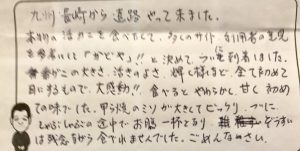 九州 長崎から 遠路 やって来ました。
本物の活カニを食べたくて、多くのサイト、利用者の意見
を参考にして「かどや」!! と決めて、ついに到着しました。
カニの大きさ、活きのよさ、全て初めて
目にするもので、大感動!! 食べるとやわらかく、甘く 初めて
の味でした。甲羅焼のミソが大きくてビックリ。ついに、
しゃぶしゃぶの途中でお腹一杯となり ぞうすい
は残念ながら食べれませんでした。ごめんなさい。